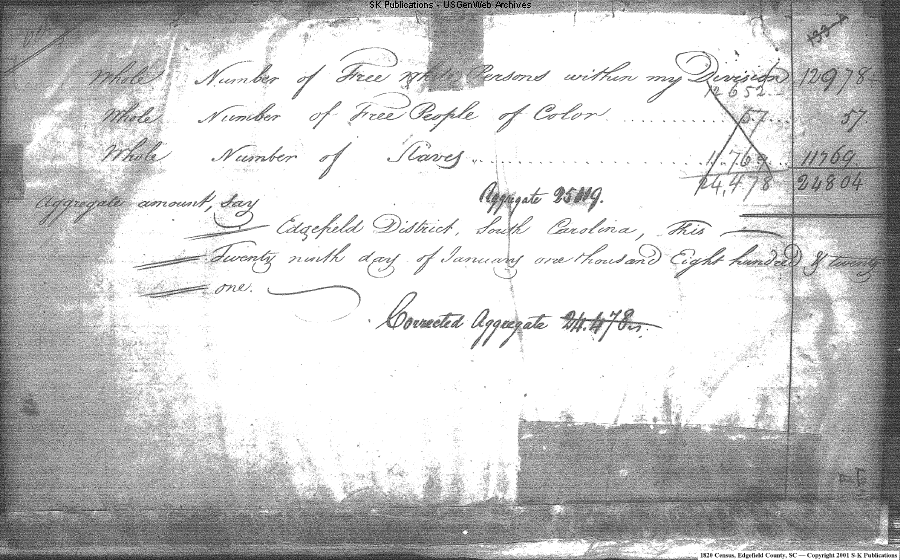 SK Publications - USGenWeb Archives
Whole Number of Free White Persons within my Division 12978
12652
Whole Number of Free People of Color ............ 57 ... 57
Whole Number of Slaves ............ 11.769 .. 11769
24,478 24804
Aggregate amount, say Aggregate 25119.
Edgefield District, South Carolina, This
Twenty ninth day of January one thousand Eight hundred & twenty
one.
Corrected Aggregate 24.478
1820 Census, Edgefield County, SC — Copyright 2001 S-K Publications